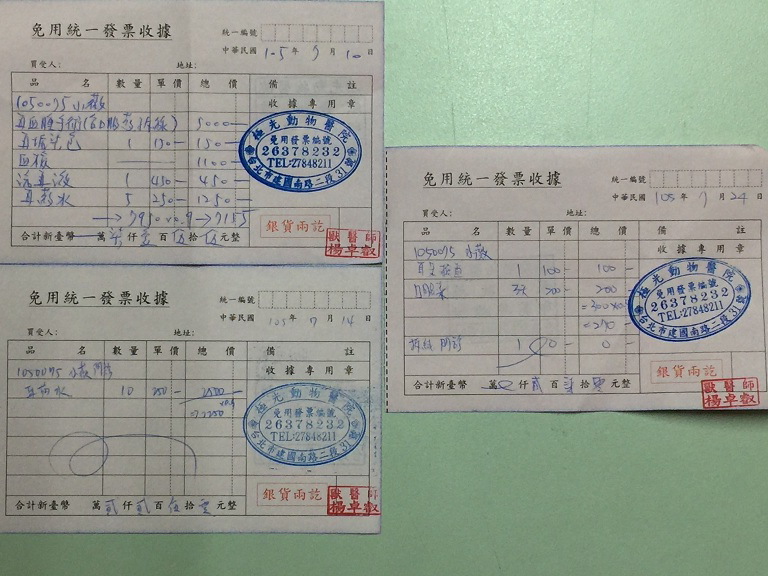 免用統一發票收據
統一編號
中華民國 105 年 7 月 10 日
買受人: 地址:
品 名 數量 單價 總價 備 註
收據專用章
1050075 小薇
耳血腫手術
5000
耳垢染色 1 150 150
血檢 1100
1 450 450
5 250 1250
→ 7950x0.9 → 7155
極光動物醫院
免用發票編號
26378232
TEL:27848211
台北市建國南路二段31號
銀貨兩訖
獸醫師
楊卓叡
合計新臺幣 萬 柒 仟 壹 百 伍 拾 伍 元整
免用統一發票收據
統一編號
中華民國 105 年 7 月 14 日
買受人: 地址:
品 名 數量 單價 總價 備 註
收據專用章
1050075 小薇
10 250 2500
x0.9
=2250
極光動物醫院
免用發票編號
26378232
TEL:27848211
台北市建國南路二段31號
銀貨兩訖
獸醫師
楊卓叡
合計新臺幣 萬 貳 仟 貳 百 伍 拾 零 元整
免用統一發票收據
統一編號
中華民國 105 年 7 月 24 日
買受人: 地址:
品 名 數量 單價 總價 備 註
收據專用章
1050075 小薇
1 100 100
200
=270
拆線 門診 1 0
極光動物醫院
免用發票編號
26378232
TEL:27848211
台北市建國南路二段31號
銀貨兩訖
獸醫師
楊卓叡
合計新臺幣 萬 仟 貳 百 柒 拾 零 元整